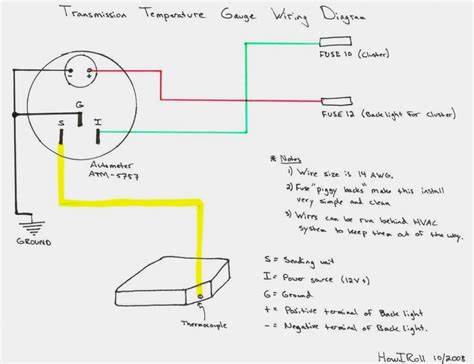 Transmission Temperature Gauge Wiring Diagram
FUSE 10 (Cluster)
- +
FUSE 12 (Backlight For Cluster)
G
S I
Autometer
ATM-5757
* Notes
1) Wire size is 14 AWG.
2) Fuse "piggy backs" make this install
very simple and clean
3) Wires can be run behind HVAC
system to keep them out of the way.
GROUND
S = Sending unit
I = Power source (12V+)
G = Ground
+ = Positive terminal of Back light
- = Negative terminal of Backlight.
Thermocouple
HowIRoll 10/2008